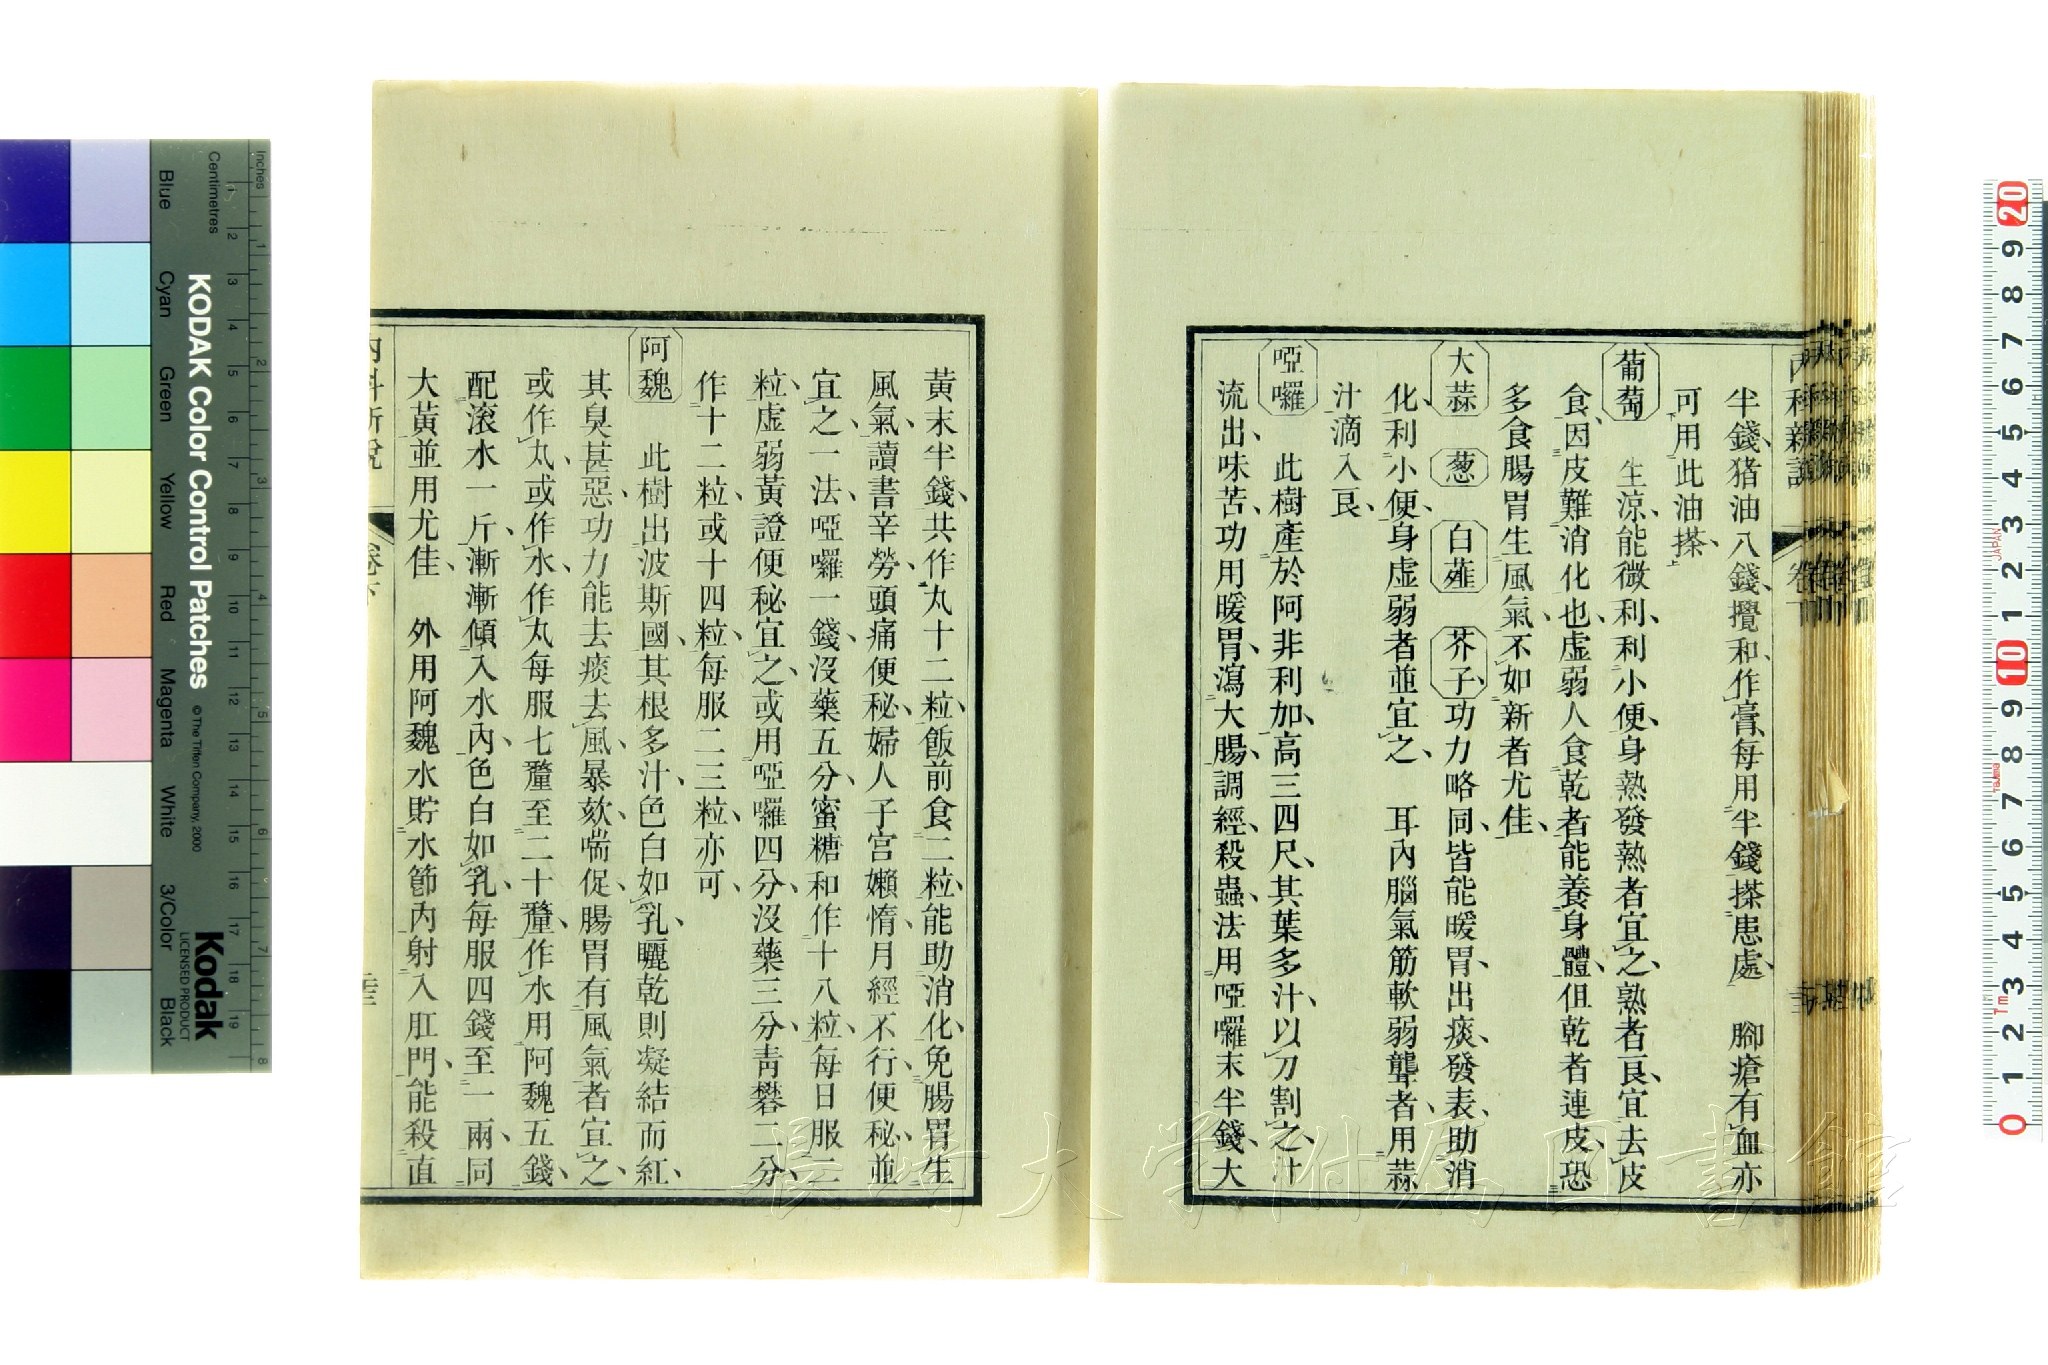 半錢、猪油八錢、攪和作膏、每用半錢搽患處、　腳瘡有血亦
可用此油搽、
葡萄　生涼、能微利、利小便、身熱發熱者宜之、熟者良、宜去皮
食、因皮難消化也、虛弱人食乾者能養身體、但乾者連皮、恐
多食腸胃生風氣、不如新者尤佳、
大蒜　葱　白薤　芥子　功力略同、皆能暖胃、出痰、發表、助消
化、利小便、身虛弱者並宜之、　耳內腦氣筋軟弱聾者、用蒜
汁滴入良、
啞囉　此樹產於阿非利加、高三四尺、其葉多汁、以刀割之、汁
流出、味苦、功用暖胃、瀉大腸、調經、殺蟲、法用啞囉末半錢、大
黃末半錢、共作丸十二粒、飯前食二粒、能助消化、免腸胃生
風氣、讀書辛勞、頭痛便秘、婦人子宮嬾惰、月經不行、便秘、並
宜之、一法、啞囉一錢、沒藥五分、蜜糖和作十八粒、每日服二
粒、虛弱黃證便秘宜之、或用啞囉四分、沒藥三分、靑礬二分、
作十二粒、或十四粒、每服二三粒、亦可、
阿魏　此樹出波斯國、其根多汁、色白如乳、曬乾則凝結而紅、
其臭甚惡、功力能去痰、去風、暴欬、喘促、腸胃有風氣者宜之、
或作丸、或作水、作丸每服七釐至二十釐、作水用阿魏五錢、
配滾水一斤、漸漸傾入水內、色白如乳、每服四錢至一兩、同
大黃並用尤佳、　外用阿魏水貯水節內、射入肛門、能殺直
內科新說
卷下
Inches
Centimetres
KODAK Color Control Patches
© The Tiffen Company, 2000
Kodak
LICENSED PRODUCT
Blue
Cyan
Green
Yellow
Red
Magenta
White
3/Color
Black
長崎大学附属図書館